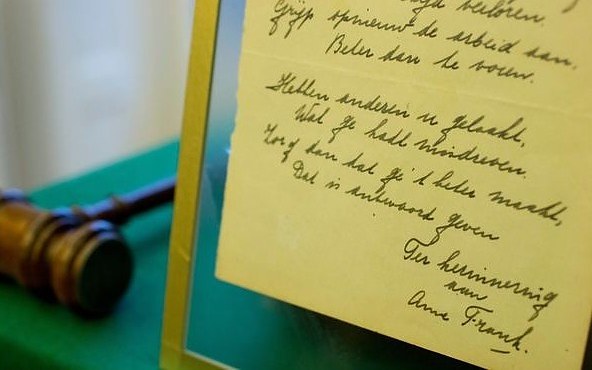 verloren.
Grijp opnieuw de arbeid aan.
Beter dan te voren.
Hebben anderen u gelaakt,
Wat ge hadt misdreven.
Zorg dan dat ge 't beter maakt,
Dat is antwoord geven
Ter herinnering
aan
Anne Frank.